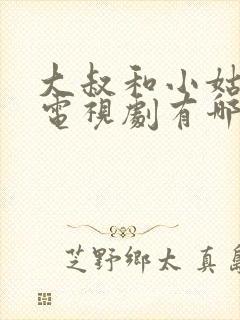 大叔和小姑
電視劇有哪
芝野鄉太 真島